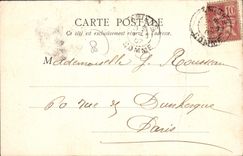 CARTE POSTALE
Ce côté est exclusivement réservé à l'adresse
SOMME
SOMME
10
8
Mademoiselle G. Rousseau
60 rue de Dunkerque
Paris